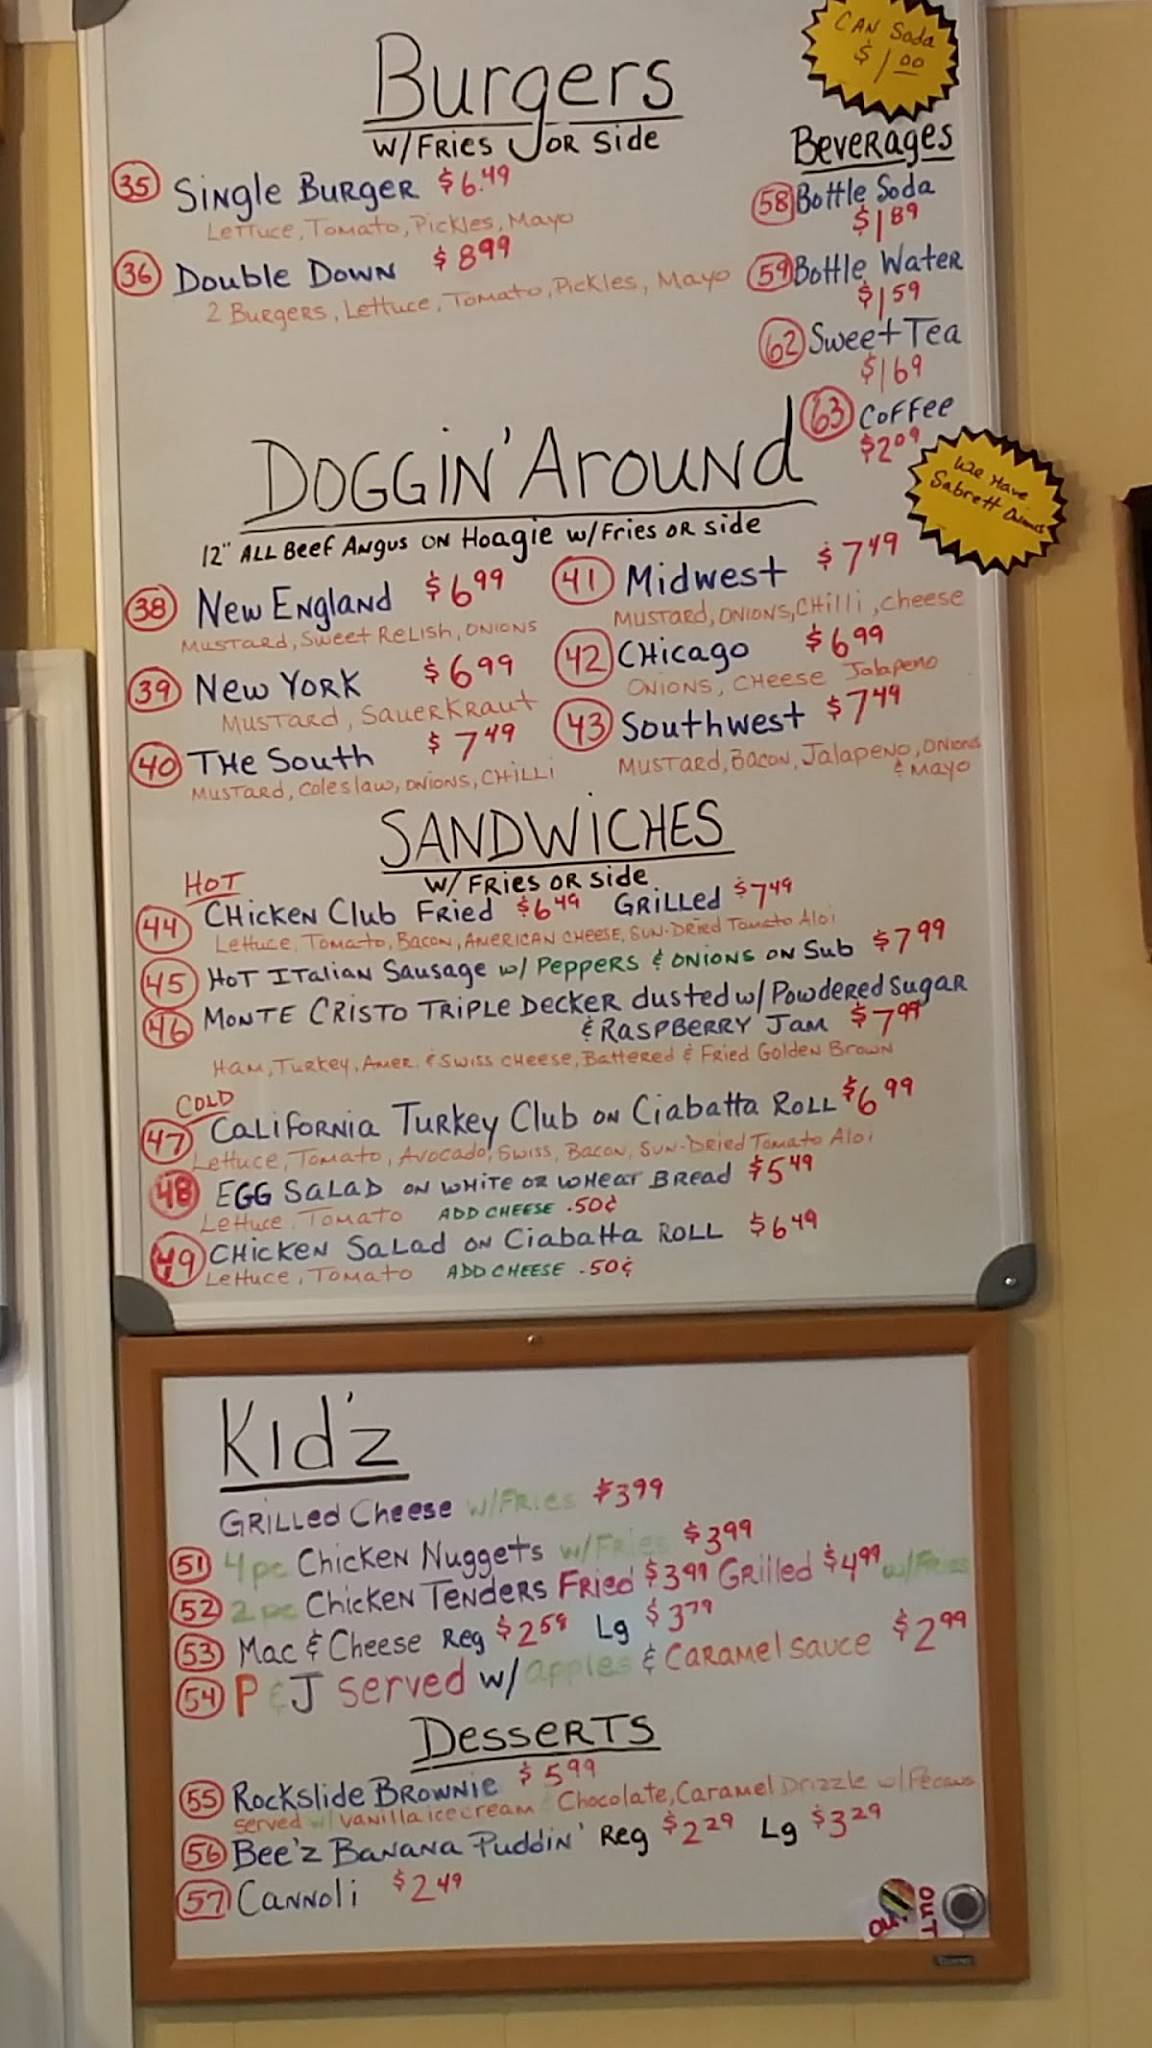 CAN Soda
$1.00
Burgers
W/Fries OR Side
35 Single Burger $6.49
Lettuce, Tomato, Pickles, Mayo
36 Double Down $8.99
2 Burgers, Lettuce, Tomato, Pickles, Mayo
Beverages
58 Bottle Soda
$1.89
59 Bottle Water
$1.59
62 Sweet Tea
$1.69
63 Coffee
$2.09
We Have
Sabrett
Doggin' Around
12" ALL Beef Angus on Hoagie w/Fries OR side
38 New England $6.99
Mustard, Sweet Relish, Onions
39 New York $6.99
Mustard, Sauerkraut
40 The South $7.49
Mustard, Coleslaw, Onions, Chilli
41 Midwest $7.49
Mustard, Onions, Chilli, cheese
42 Chicago $6.99
Onions, Cheese Jalapeno
43 Southwest $7.49
Mustard, Bacon, Jalapeno, Onions
& Mayo
SANDWICHES
w/ Fries OR side
HOT
44 Chicken Club Fried $6.49 Grilled $7.49
Lettuce, Tomato, Bacon, American Cheese, Sun-Dried Tomato Aloi
45 Hot Italian Sausage w/ Peppers & Onions on Sub $7.99
46 Monte Cristo Triple Decker dusted w/ Powdered Sugar
& Raspberry Jam $7.99
Ham, Turkey, Amer. & Swiss cheese, Battered & Fried Golden Brown
COLD
47 California Turkey Club on Ciabatta Roll $6.99
Lettuce, Tomato, Avocado, Swiss, Bacon, Sun-Dried Tomato Aloi
48 Egg Salad on white or wheat Bread $5.49
Lettuce, Tomato ADD CHEESE .50¢
49 Chicken Salad on Ciabatta Roll $6.49
Lettuce, Tomato ADD CHEESE .50¢
Kid'z
Grilled Cheese w/Fries $3.99
51 4pc Chicken Nuggets w/Fries $3.99
52 2pc Chicken Tenders Fried $3.99 Grilled $4.99 w/Fries
53 Mac & Cheese Reg $2.59 Lg $3.79
54 P&J served w/ apples & Caramel sauce $2.99
Desserts
55 Rockslide Brownie $5.99
served w/ vanilla ice cream Chocolate, Caramel Drizzle w/Pecans
56 Bee'z Banana Puddin' Reg $2.29 Lg $3.29
57 Cannoli $2.49
OUT
OUT